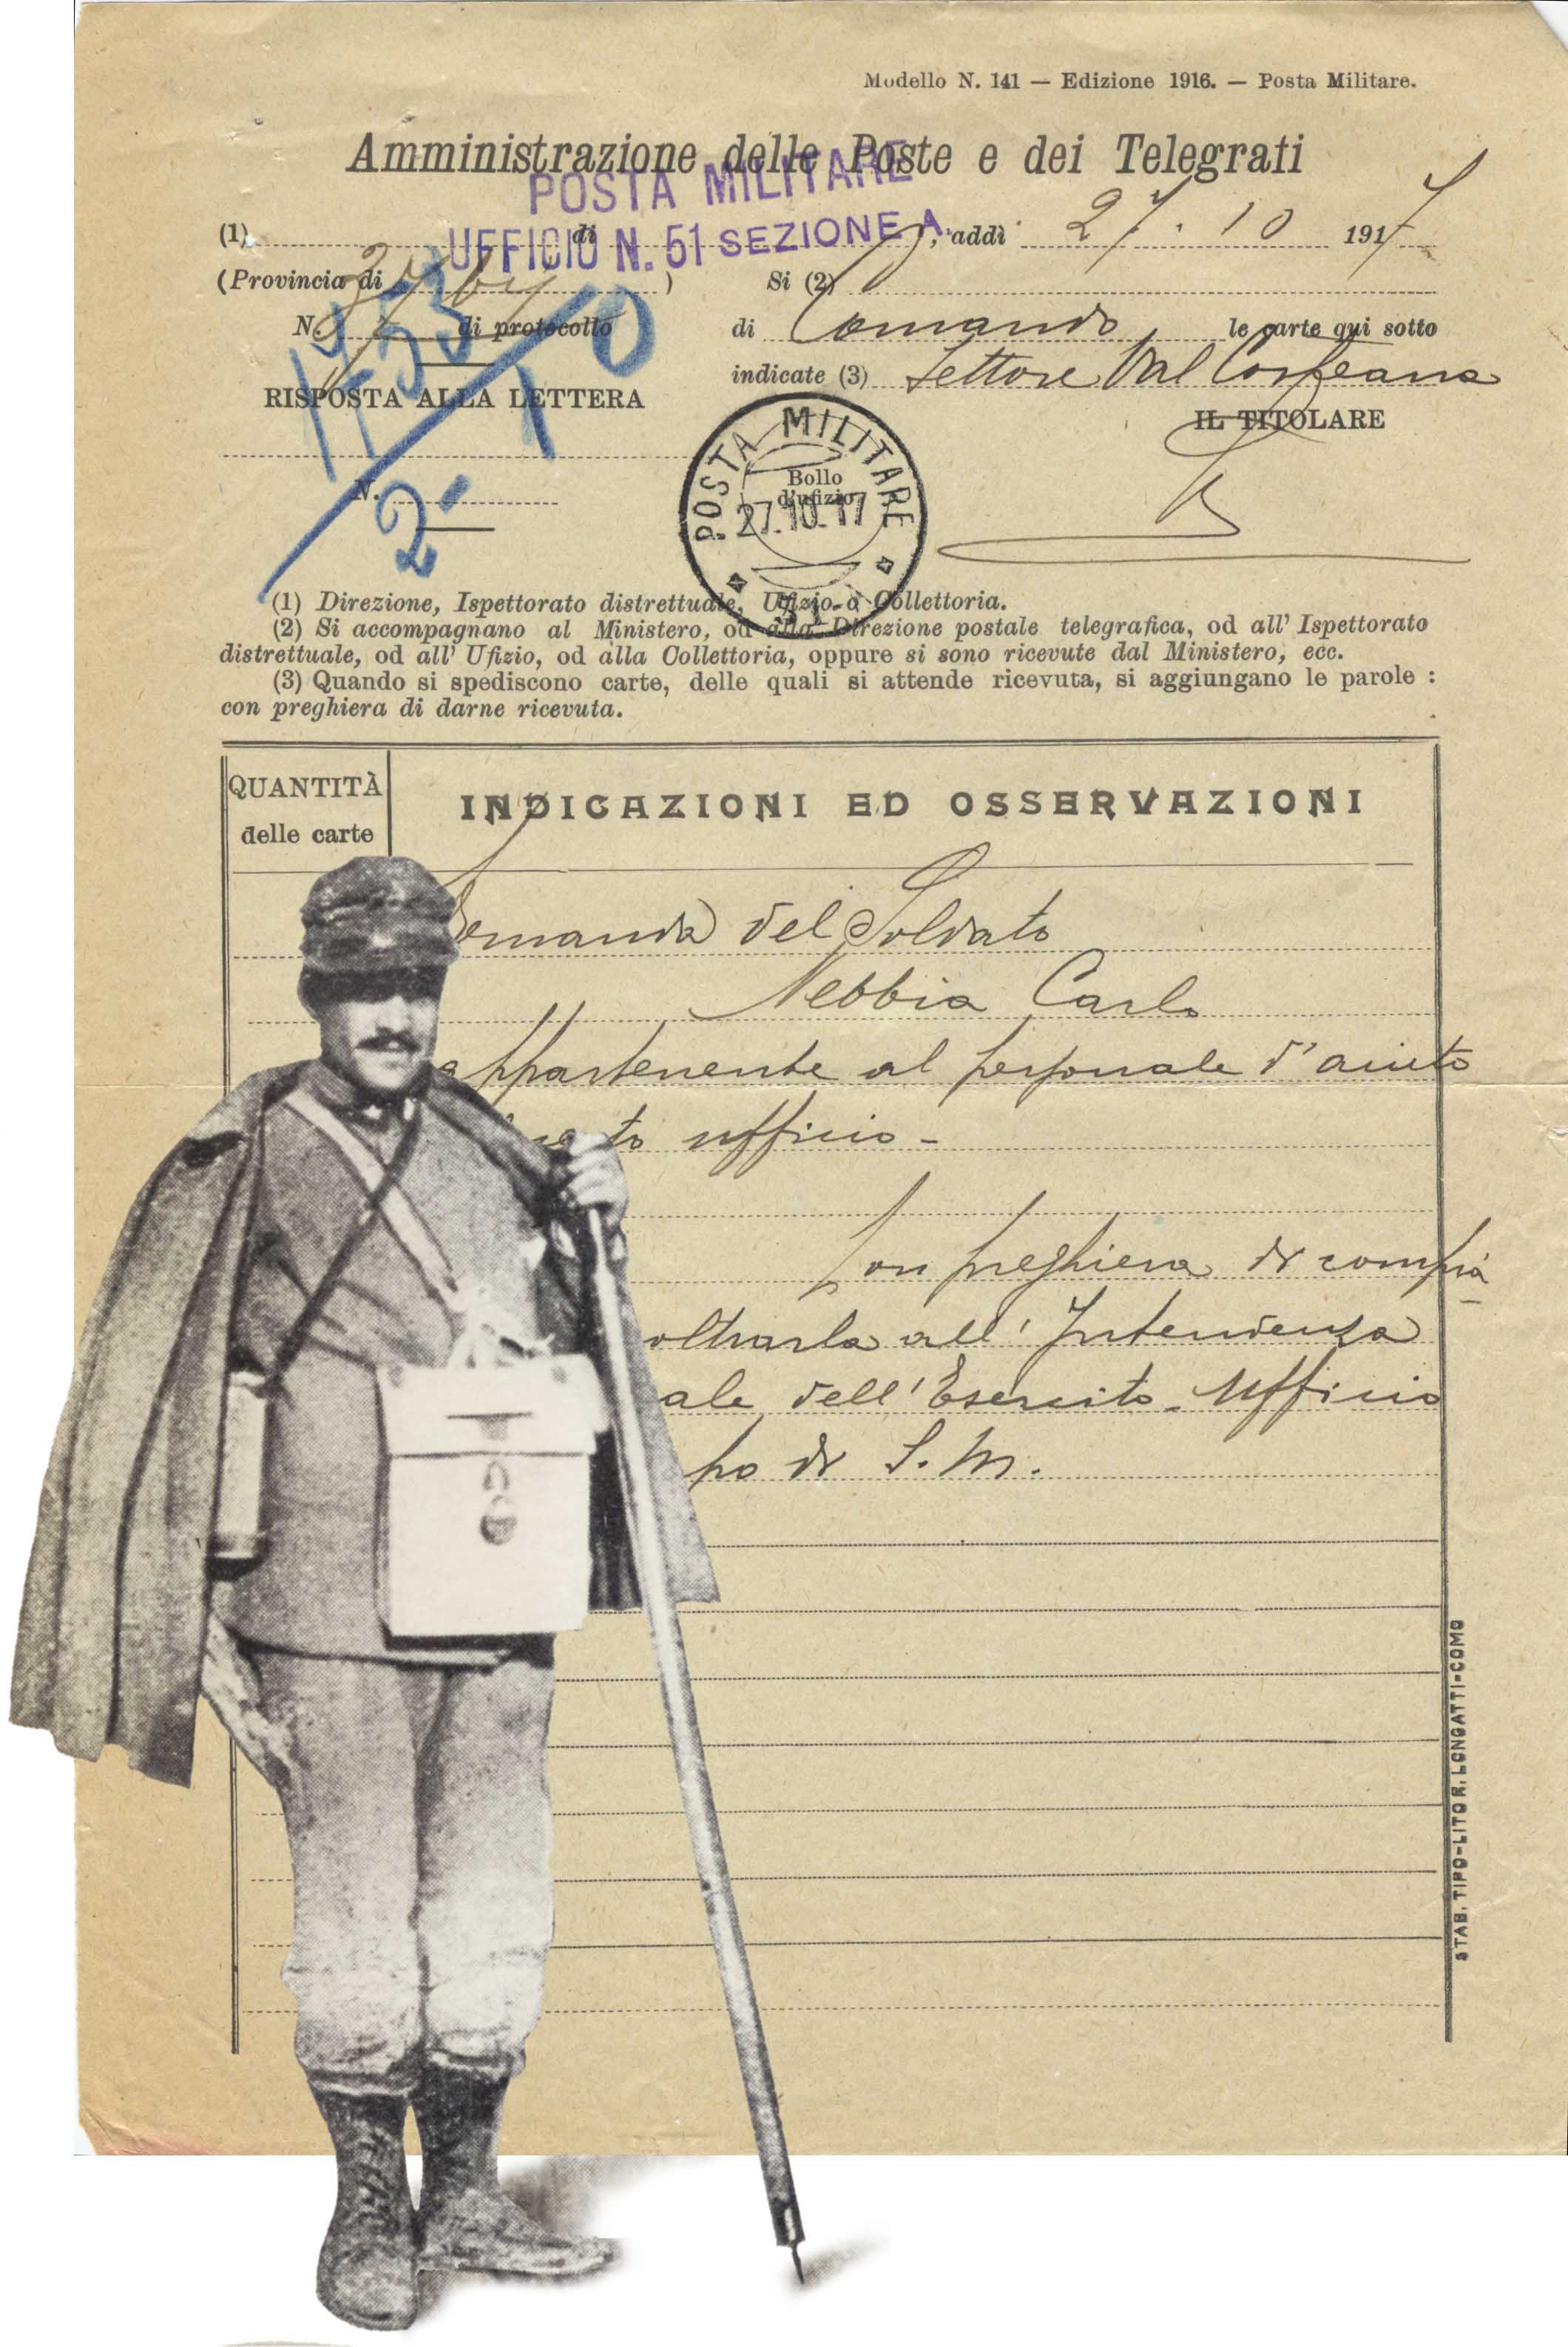 Modello N. 141 — Edizione 1916. — Posta Militare.
Amministrazione delle Poste e dei Telegrafi
POSTA MILITARE
UFFICIO N. 51 SEZIONE A.
(1) di , addì 27. 10 1917
(Provincia di ) Si (2)
N. di protocollo di Comando le carte qui sotto
RISPOSTA ALLA LETTERA indicate (3) Settore Val
IL TITOLARE
POSTA MILITARE
Bollo
d'ufizio
27.10.17
51
N.
2
(1) Direzione, Ispettorato distrettuale, Ufizio o Collettoria.
(2) Si accompagnano al Ministero, od alla Direzione postale telegrafica, od all' Ispettorato
distrettuale, od all' Ufizio, od alla Collettoria, oppure si sono ricevute dal Ministero, ecc.
(3) Quando si spediscono carte, delle quali si attende ricevuta, si aggiungano le parole :
con preghiera di darne ricevuta.
QUANTITÀ
delle carte
INDICAZIONI ED OSSERVAZIONI
Domanda del Soldato
Nebbia Carlo
appartenente al personale d'aiuto
ufficio -
Con preghiera di compia
oltrarla all'Intendenza
ale dell'Esercito. Ufficio
po di S. M.
STAB. TIPO-LITO R. LONGATTI-COMO